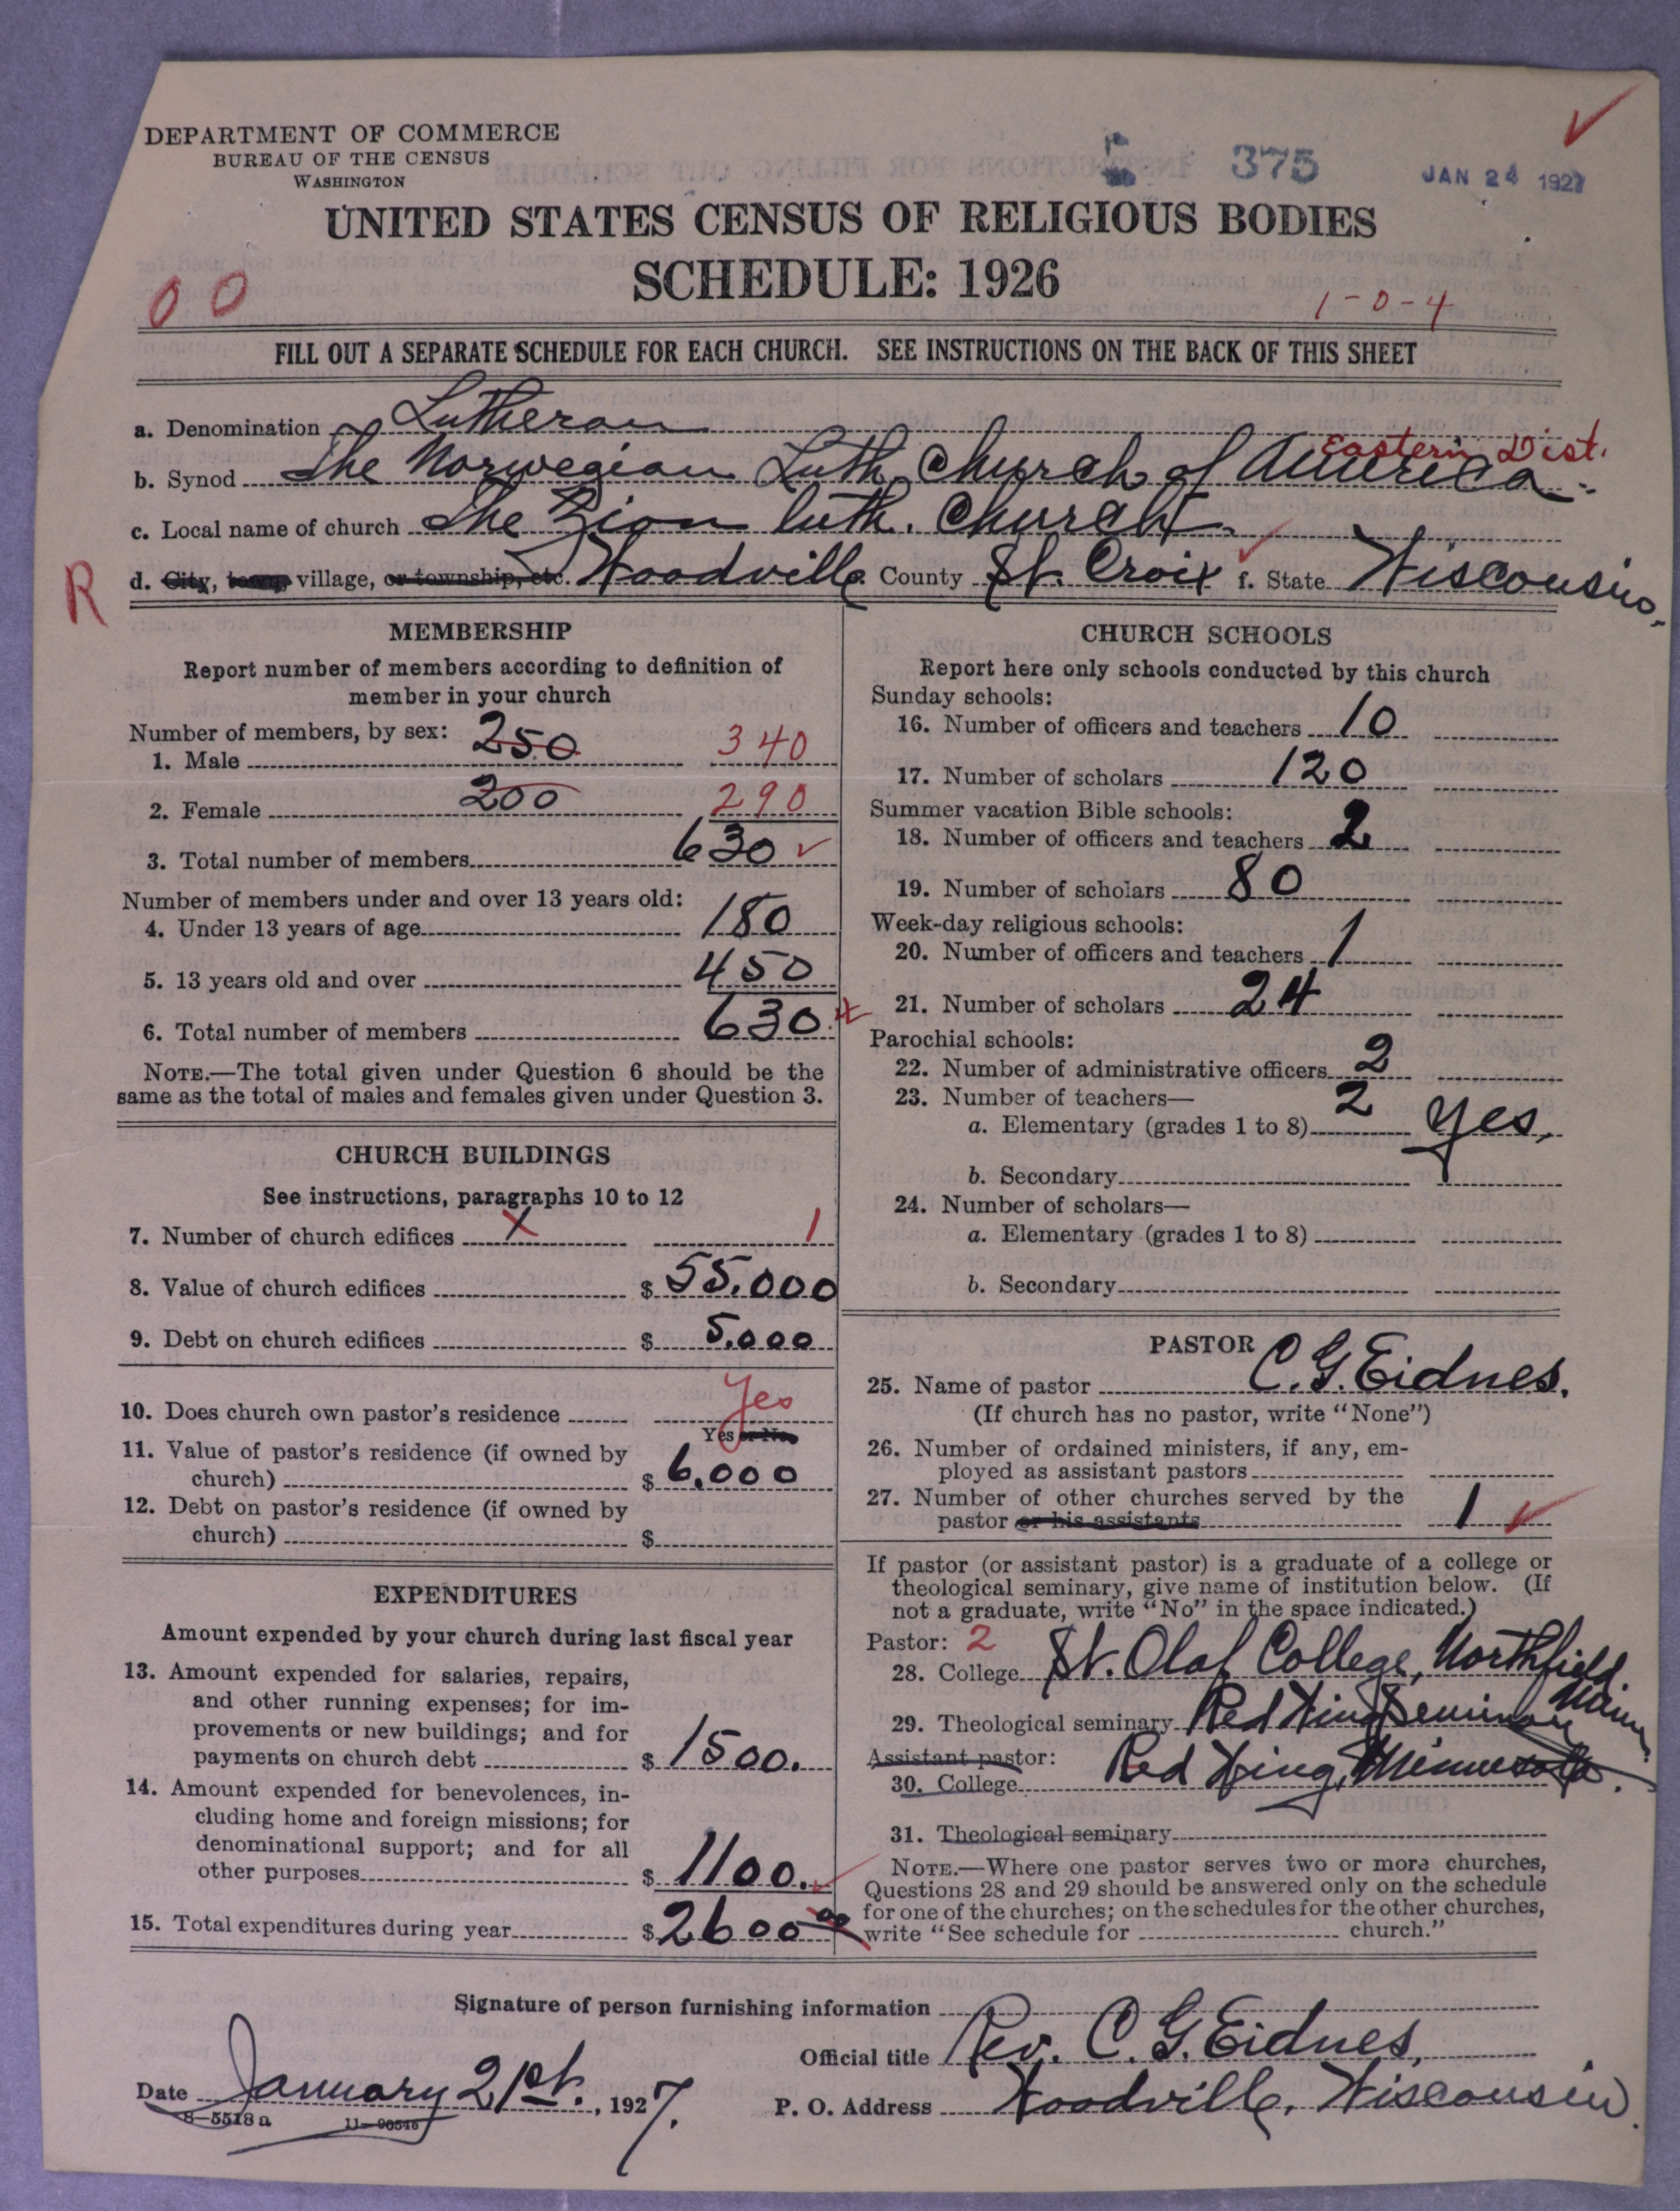 DEPARTMENT OF COMMERCE
BUREAU OF THE CENSUS
WASHINGTON
375
JAN 24 1927
UNITED STATES CENSUS OF RELIGIOUS BODIES
SCHEDULE: 1926
00
1-0-4
FILL OUT A SEPARATE SCHEDULE FOR EACH CHURCH. SEE INSTRUCTIONS ON THE BACK OF THIS SHEET
a. Denomination Lutheran
Eastern Dist.
b. Synod The Norwegian Luth. Church of America
c. Local name of church The Zion Luth. Church
R
d. City, town, village, or township, etc. Woodville County St. Croix f. State Wisconsin
MEMBERSHIP
Report number of members according to definition of
member in your church
Number of members, by sex:
1. Male 250 340
2. Female 200 290
3. Total number of members 630
Number of members under and over 13 years old:
4. Under 13 years of age 180
5. 13 years old and over 450
6. Total number of members 630
NOTE.—The total given under Question 6 should be the
same as the total of males and females given under Question 3.
CHURCH BUILDINGS
See instructions, paragraphs 10 to 12
7. Number of church edifices X 1
8. Value of church edifices $ 55.000
9. Debt on church edifices $ 5.000
10. Does church own pastor's residence Yes
Yes or No
11. Value of pastor's residence (if owned by
church) $ 6.000
12. Debt on pastor's residence (if owned by
church) $
EXPENDITURES
Amount expended by your church during last fiscal year
13. Amount expended for salaries, repairs,
and other running expenses; for im-
provements or new buildings; and for
payments on church debt $ 1500.
14. Amount expended for benevolences, in-
cluding home and foreign missions; for
denominational support; and for all
other purposes $ 1100.
15. Total expenditures during year $ 2600 00
CHURCH SCHOOLS
Report here only schools conducted by this church
Sunday schools:
16. Number of officers and teachers 10
17. Number of scholars 120
Summer vacation Bible schools:
18. Number of officers and teachers 2
19. Number of scholars 80
Week-day religious schools:
20. Number of officers and teachers 1
21. Number of scholars 24
Parochial schools:
22. Number of administrative officers 2
23. Number of teachers—
a. Elementary (grades 1 to 8) 2 Yes,
b. Secondary
24. Number of scholars—
a. Elementary (grades 1 to 8)
b. Secondary
PASTOR
25. Name of pastor C. G. Eidnes.
(If church has no pastor, write "None")
26. Number of ordained ministers, if any, em-
ployed as assistant pastors
27. Number of other churches served by the
pastor or his assistants 1
If pastor (or assistant pastor) is a graduate of a college or
theological seminary, give name of institution below. (If
not a graduate, write "No" in the space indicated.)
Pastor: 2
28. College St. Olaf College, Northfield Minn.
29. Theological seminary Red Wing Seminary
Assistant pastor:
30. College Red Wing, Minnesota.
31. Theological seminary
NOTE.—Where one pastor serves two or more churches,
Questions 28 and 29 should be answered only on the schedule
for one of the churches; on the schedules for the other churches,
write "See schedule for church."
Signature of person furnishing information
Official title Rev. C. G. Eidnes,
Date January 21st., 1927.
P. O. Address Woodville, Wisconsin.
8—5518 a 11—90546